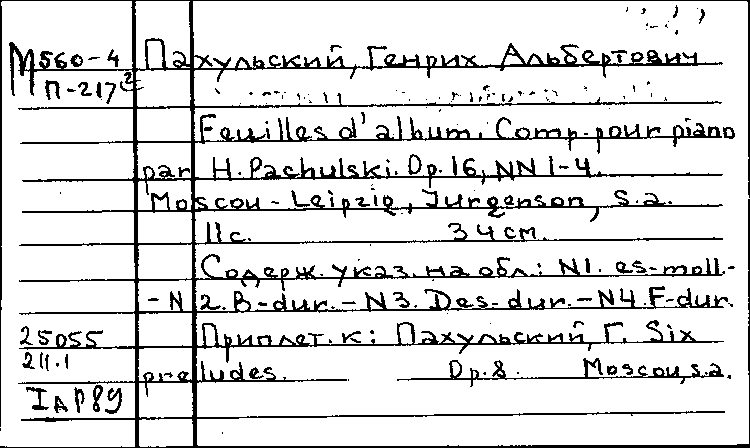 М560-4 Пахульский, Генрих Альбертович
П-217²
Feuilles d'album. Comp. pour piano
par H. Pachulski. Op. 16, NN 1-4.
Moscou - Leipzig, Jurgenson, s.a.
11 с. 34 см.
Содерж. указ. на обл.: N1. es-moll.-
- N 2. B-dur. - N3. Des-dur. - N4. F-dur.
25055 Приплет. к: Пахульский, Г. Six
211.1 preludes. Op. 8. Moscou, s.a.
IAP89